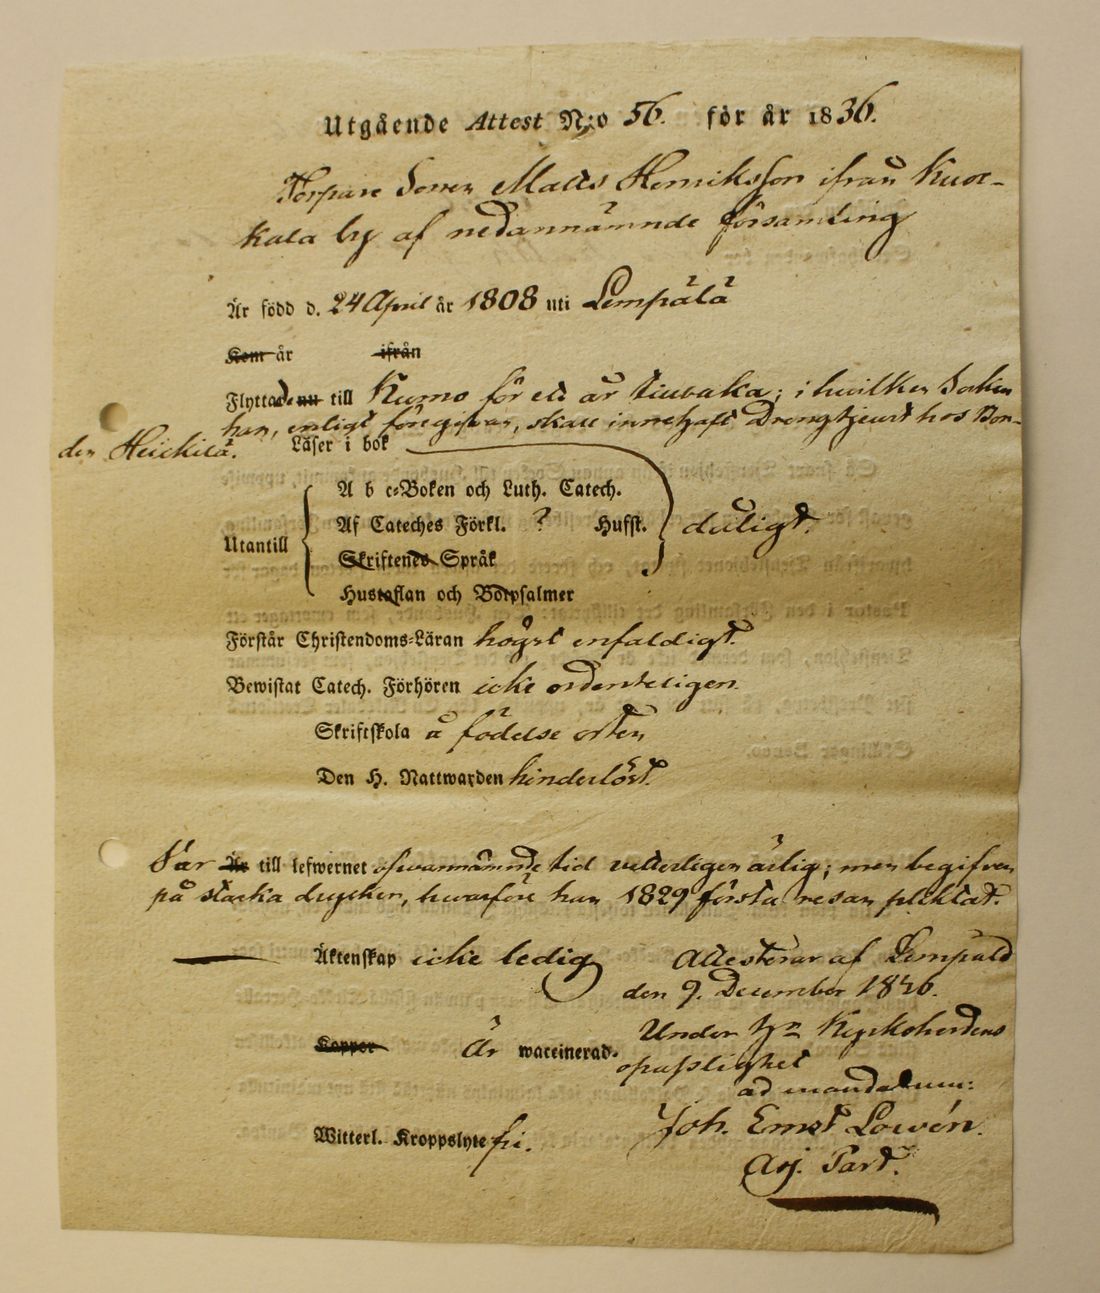 Utgående Attest N:o 56. för år 1836.
Torpare Sonen Matts Henriksson ifrån Kuor-
kala by af nedannämnde församling
Är född d. 24 April år 1808 uti Lempälä
Kom år ifrån
Flyttade nu till Kumo för ett år tillbaka; i hvilken Socken
han, enligt föregifvan, skall innehaft Drengtjenst hos Bon-
den Heickilä.
Läser i bok
A b c-Boken och Luth. Catech.
Af Cateches Förkl. ? Hufst. dåligt.
Utantill
Skriftenes Språk
Hustaflan och Botpsalmer
Förstår Christendoms-Läran högst enfaldigt.
Bewistat Catech. Förhören icke ordenteligen.
Skriftskola å födelse orten
Den H. Nattwarden hinderlöst.
Var Är till lefwernet ofvannämnde tid vetterligen ärlig; men begifven
på starka drycker, hvarföre han 1829 första resan pliktat.
Äktenskap icke ledig Attesterar af Lempälä
den 9. December 1836.
Under Hr Kyrkoherdens
Koppor Är waccinerad. opasslighet
ad mandatum:
Witterl. Kroppslyte fri. Joh. Ernst Lowén.
Adj. Past.